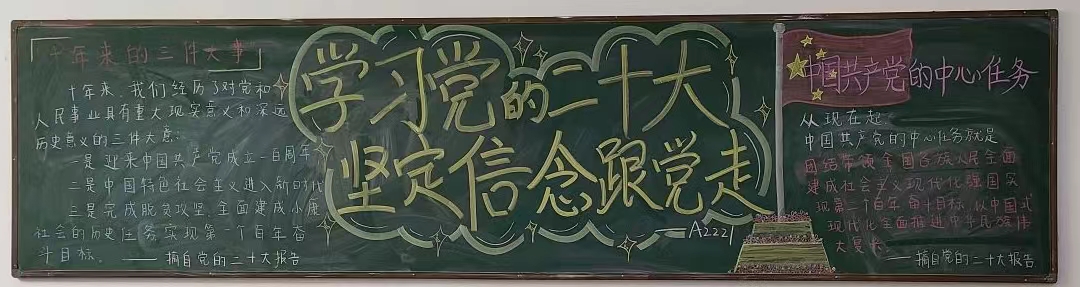 十年来的三件大事
十年来，我们经历了对党和
人民事业具有重大现实意义和深远
历史意义的三件大意：
一是迎来中国共产党成立一百周年
二是中国特色社会主义进入新时代
三是完成脱贫攻坚、全面建成小康
社会的历史任务，实现第一个百年奋
斗目标。
——摘自党的二十大报告
学习党的二十大
坚定信念跟党走
——A2221
中国共产党的中心任务
从现在起，
中国共产党的中心任务就是
团结带领全国各族人民全面
建成社会主义现代化强国实
现第二个百年奋斗目标，以中国式
现代化全面推进中华民族伟
大复兴
——摘自党的二十大报告